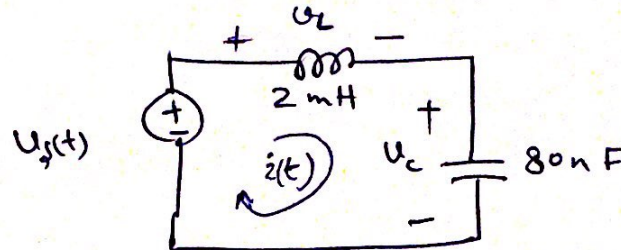 + v_L −
2 mH
+
+
−
v_s(t)
i(t)
v_c
80 n F
−